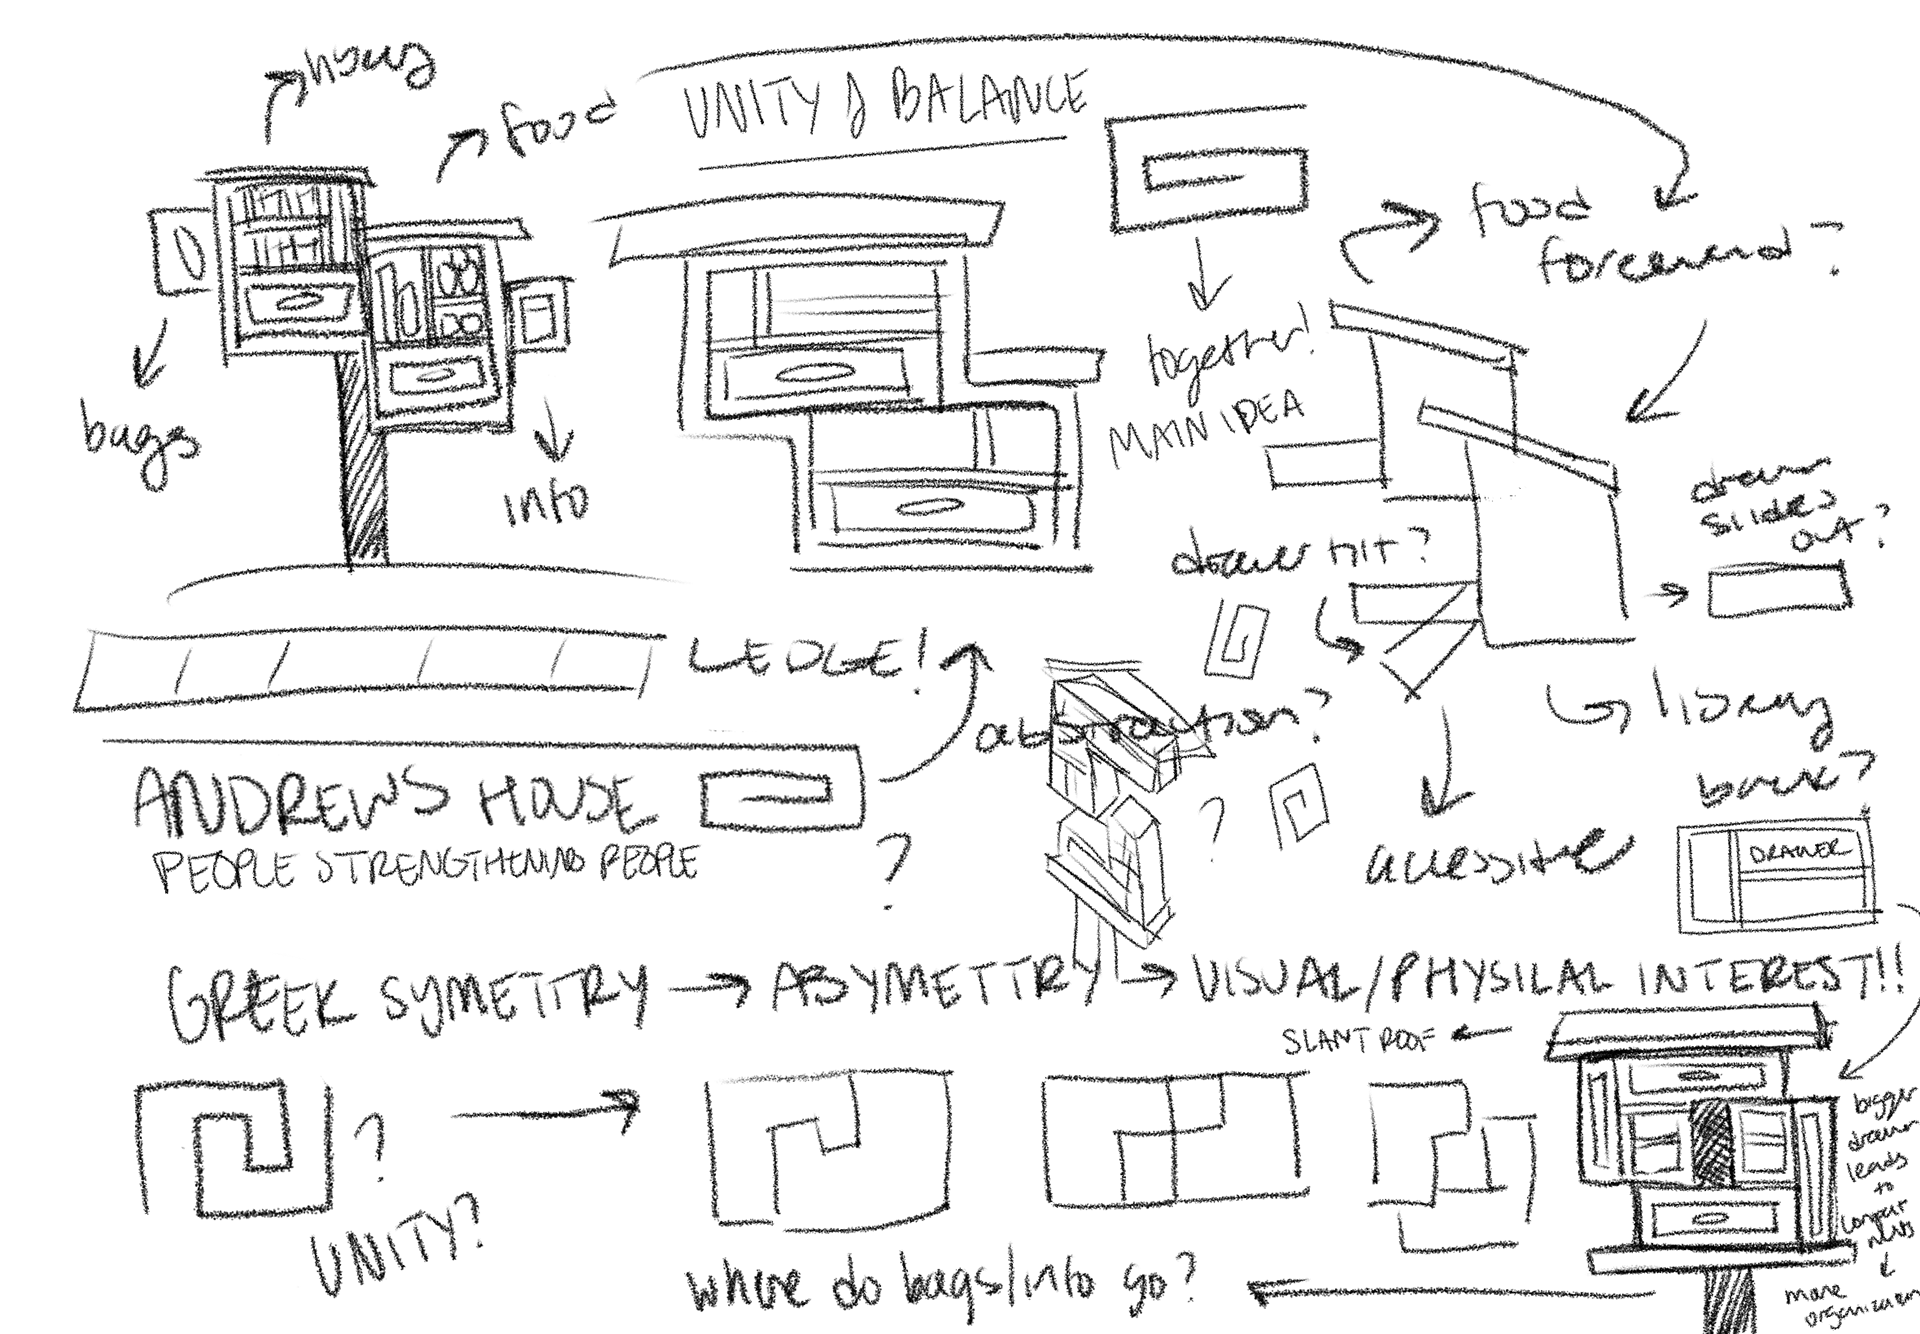 library
food
UNITY & BALANCE
bags
info
together!
MAIN IDEA
food
forward?
drawer tilt?
drawer
slides
out?
LEDGE!
abstraction?
library
ANDREWS HOUSE
PEOPLE STRENGTHENING PEOPLE
?
?
accessible
back?
DRAWER
GREEK SYMETTRY → ASYMETTRY → VISUAL/PHYSICAL INTEREST!!
SLANT ROOF
?
UNITY?
where do bags/info go?
bigger
drawer
leads
to
more